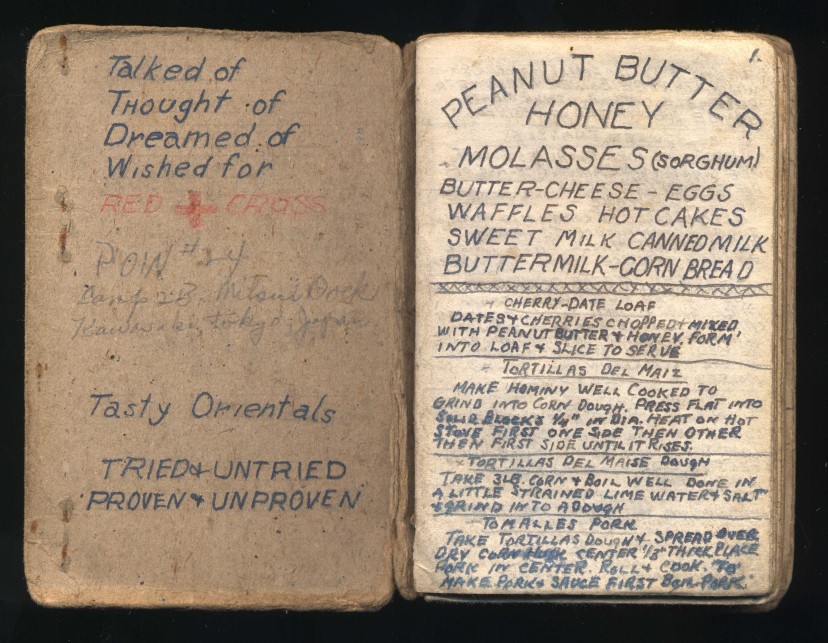 Talked of
Thought of
Dreamed of
Wished for
RED + CROSS
POW #24
Camp 2B, Mitsui Dock
Kawasaki, Tokyo, Japan
Tasty Orientals
TRIED & UNTRIED
PROVEN & UNPROVEN
1.
PEANUT BUTTER
HONEY
MOLASSES (SORGHUM)
BUTTER-CHEESE - EGGS
WAFFLES HOT CAKES
SWEET MILK CANNED MILK
BUTTERMILK-CORN BREAD
CHERRY-DATE LOAF
DATES & CHERRIES CHOPPED & MIXED
WITH PEANUT BUTTER & HONEY. FORM
INTO LOAF & SLICE TO SERVE
TORTILLAS DEL MAIZ
MAKE HOMINY WELL COOKED TO
GRIND INTO CORN DOUGH. PRESS FLAT INTO
SOLID BLOCKS 1/4" IN DIA. HEAT ON HOT
STOVE FIRST ONE SIDE THEN OTHER
THEN FIRST SIDE UNTIL IT RISES.
TORTILLAS DEL MAISE DOUGH
TAKE 3LB. CORN & BOIL WELL DONE IN
A LITTLE STRAINED LIME WATER & SALT
& GRIND INTO A DOUGH
TOMALLES PORK
TAKE TORTILLAS DOUGH & SPREAD OVER
DRY CORN HUSK CENTER 1/3" THICK PLACE
PORK IN CENTER. ROLL & COOK. TO
MAKE PORK & SAUCE FIRST BOIL PORK